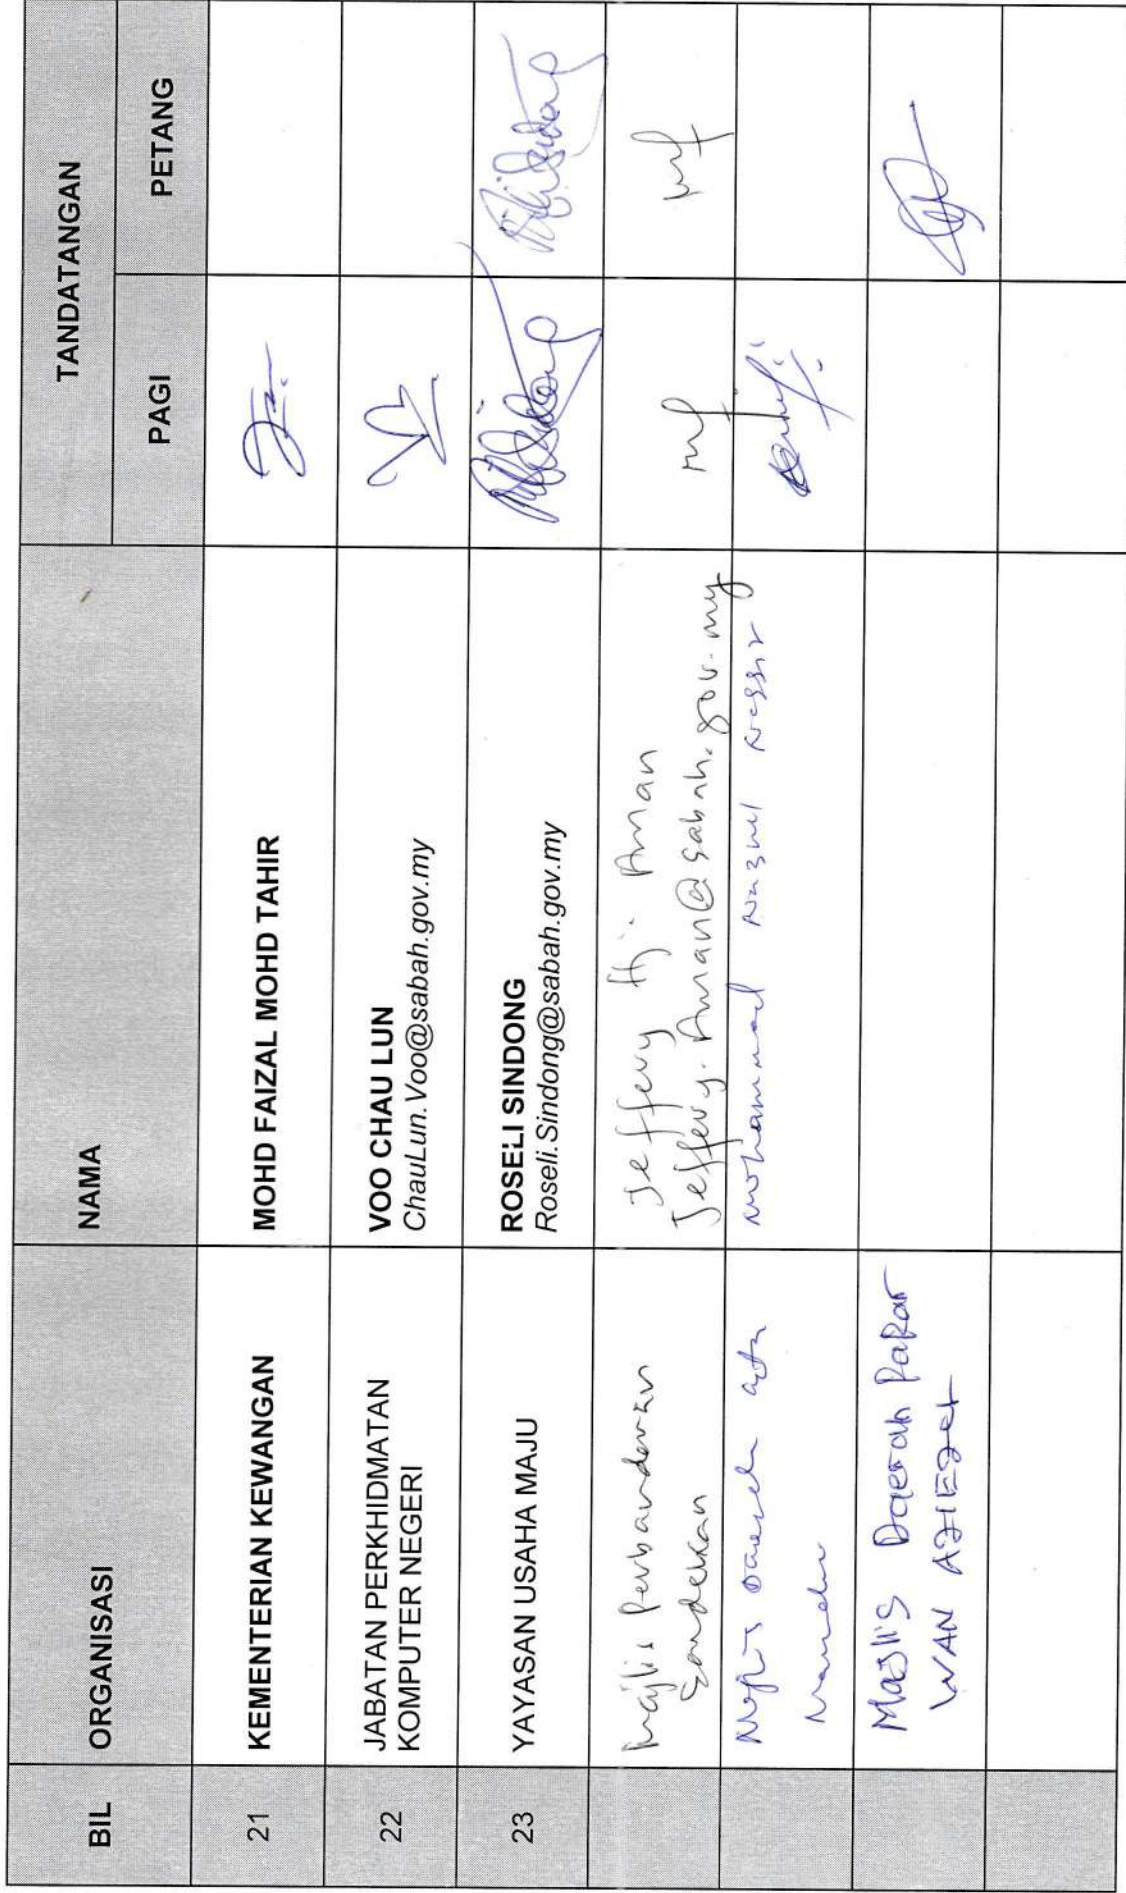 BIL ORGANISASI NAMA TANDATANGAN
PAGI PETANG
21 KEMENTERIAN KEWANGAN MOHD FAIZAL MOHD TAHIR
22 JABATAN PERKHIDMATAN
KOMPUTER NEGERI
VOO CHAU LUN
ChauLun.Voo@sabah.gov.my
23 YAYASAN USAHA MAJU
ROSELI SINDONG
Roseli.Sindong@sabah.gov.my
Majlis Perbandaran
Sandakan
Jeffery Hj. Aman
Jeffery.Aman@sabah.gov.my
Majlis Daerah Kota
Marudu
Mohammad Nazrul
Majlis Daerah Papar
WAN